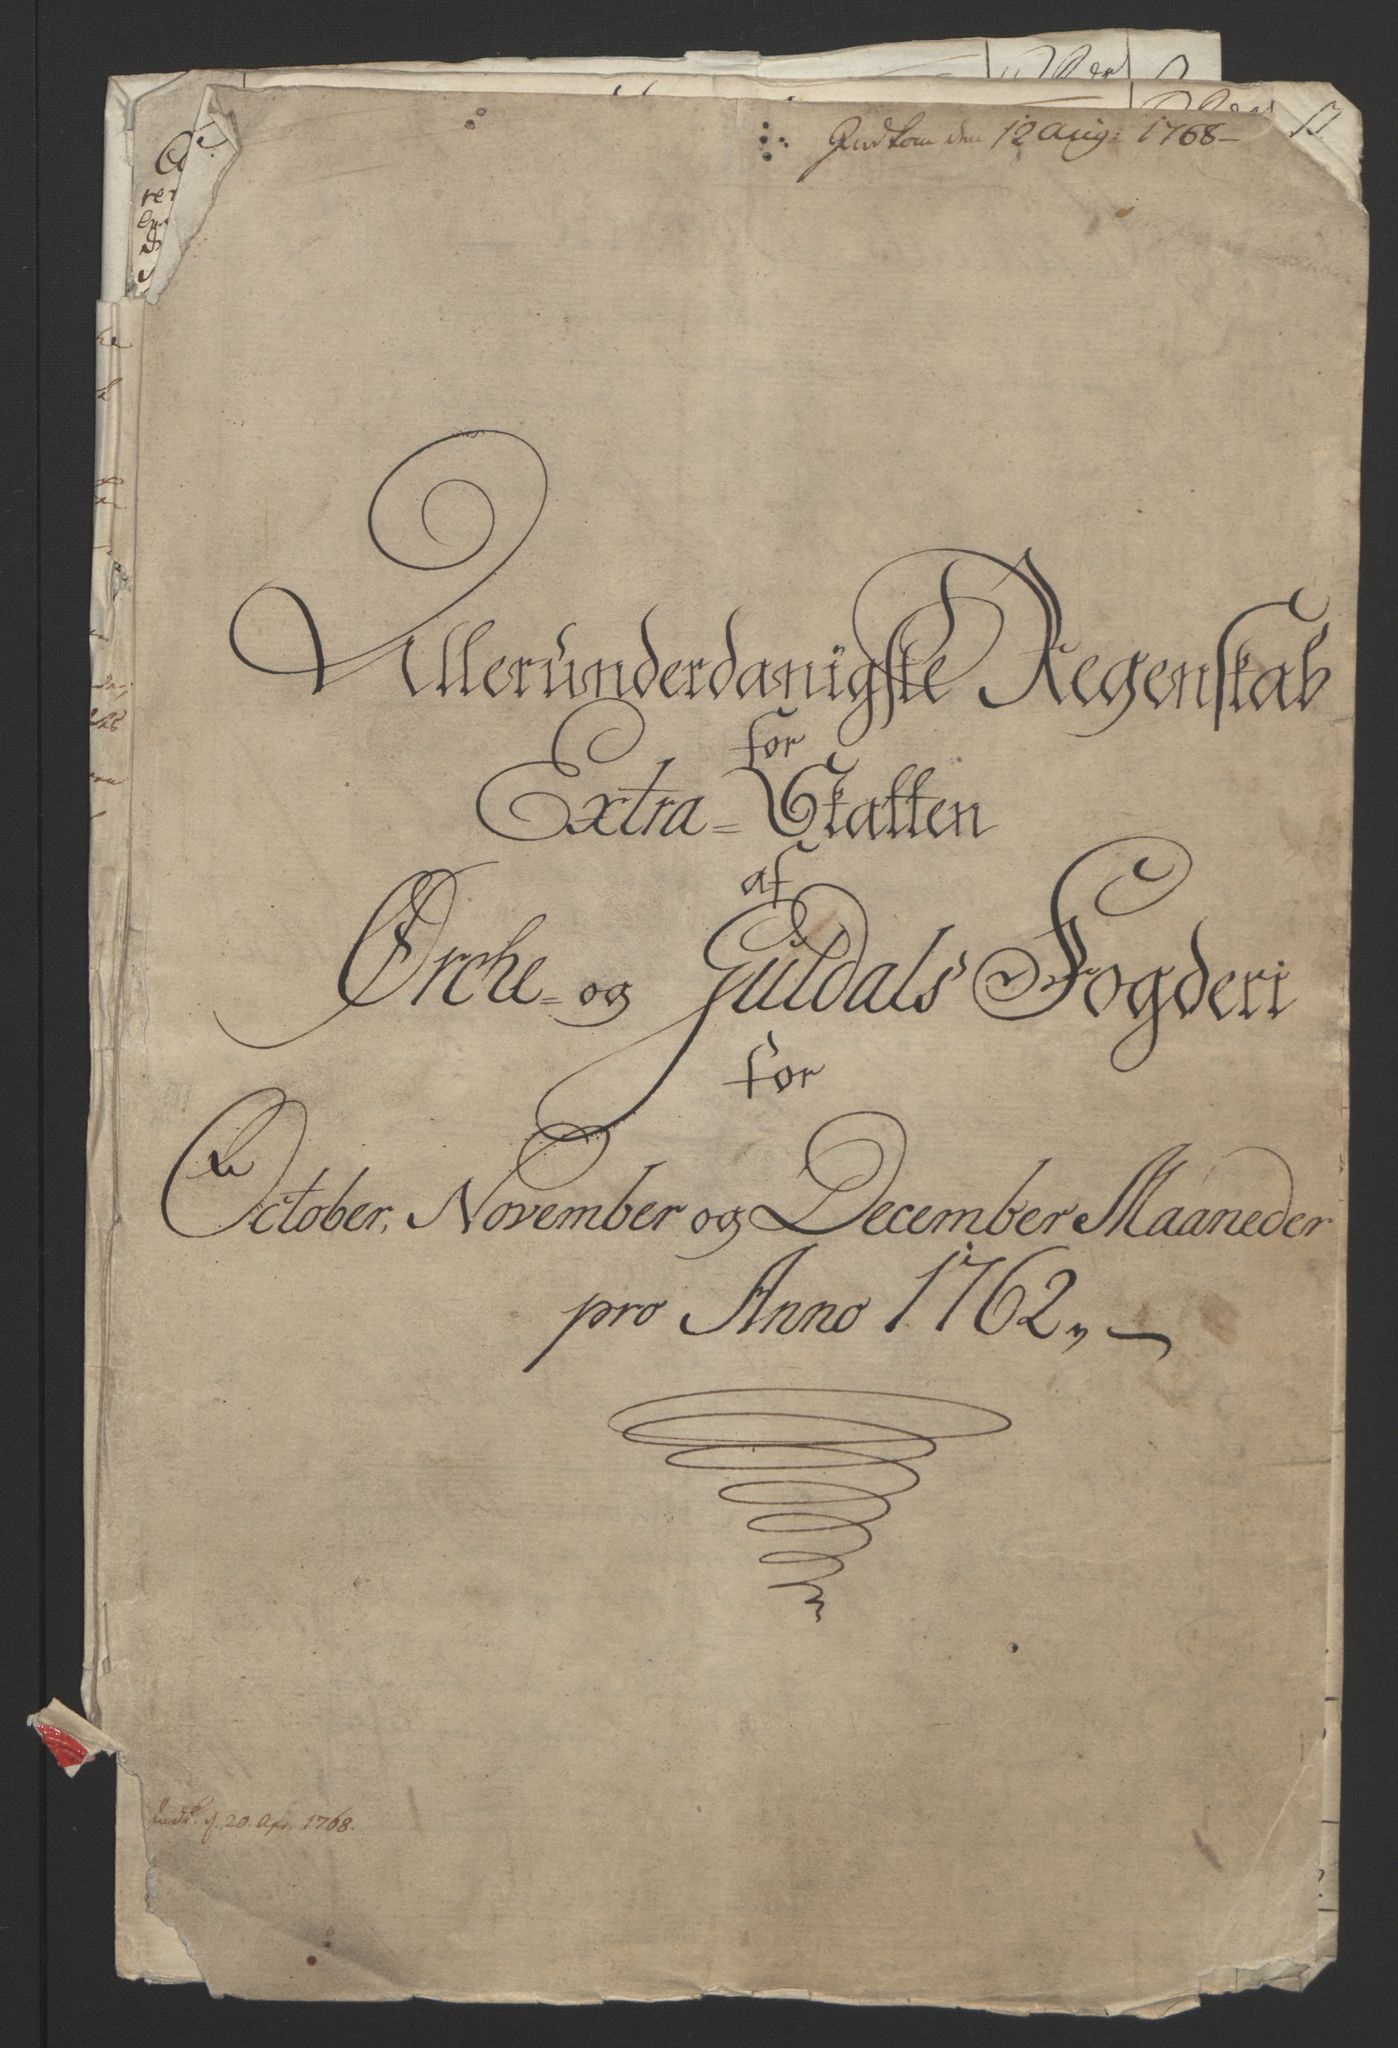 Indkom den 12 Aug: 1768 –
Alleründerdanigste Regenskab
for
Extra = Skatten
af
Ørche = og Guldals Fogderi
for
October, November og December Maaneder
pro Anno 1762,, –
Inds. d. 20. Apr. 1768.